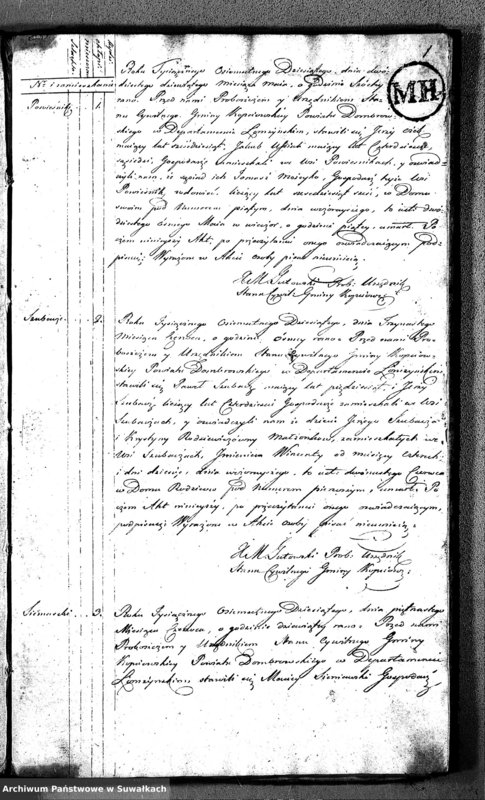 1
MH
No i zamieszkanie
Powiesnik 1.
Roku Tysiącznego Osiemsetnego Dziesiątego, dnia dwu
dziestego dziewiątego Miesiąca Maia, o godzinie Szóstej
rano. Przed nami Proboszczem y Urzędnikiem Sta
nu Cywilnego Gminy Kopciowskiej Powiatu Dombrow
skiego w Departamencie Łomżyńskim, stawili się Jerzy
maiący lat sześćdziesiąt, Jakub maiący lat Czterdzieści,
Gospodarze zamieszkali we Wsi Powiesnikach, y oswiad
czyli nam, iż Tomasz Matyka, Gospodarz tejże Wsi
Powiesnik, liczący lat sześćdziesiąt sześć, w Domu
swoim pod Numerem piątym, dnia wczorayszego, to iest dwu
dziestego ósmego Maia w wieczor, o godzinie piątey, umarł. Po
czem ninieyszy Akt, po przeczytaniu onego oswiadczaiącym pod
pisuię. Wyrażone w Akcie osoby pisać nieumieią.
X M Jutowski Prob. Urzędnik
Stanu Cywil. Gminy Kopciow.
Szubacze 2.
Roku Tysiącznego Osiemsetnego Dziesiątego, dnia Trzynastego
Miesiąca Czerwca, o godzinie ósmey rano. Przed nami Pro
boszczem y Urzędnikiem Stanu Cywilnego Gminy Kopciow
skiey Powiatu Dombrowskiego w Departamencie Łomżyńskim
stawili się Paweł Szubacz maiący lat pięćdziesiąt, i Jerzy
Szubacz liczący lat Czterdzieści Gospodarze zamieszkali w Wsi
Szubaczach, y oswiadczyli nam iż dziecie Jerzego Szubacza
i Krystyny Małżonkow, zamieszkałych we
Wsi Szubaczach, Imieniem Wincenty od miesięcy Czterech
i dni dziesięć, dnia wczorayszego, to iest dwunastego Czerwca
w Domu Rodziców pod Numerem pierwszym, umarło. Po
czem Akt ninieyszy, po przeczytaniu onego oswiadczaiącym,
podpisuię. Wyrażone w Akcie osoby pisać nieumieią.
X M Jutowski Prob. Urzędnik
Stanu Cywilnego Gminy Kopciow.
Sieniawski 3.
Roku Tysiącznego Osiemsetnego Dziesiątego, dnia piętnastego
Miesiąca Czerwca, o godzinie dziewiątey rano. Przed nami
Proboszczem y Urzędnikiem Stanu Cywilnego Gminy
Kopciowskiey Powiatu Dombrowskiego w Departamencie
Łomżyńskim stawili się Maciey Sieniawski Gospodarz
Archiwum Państwowe w Suwałkach